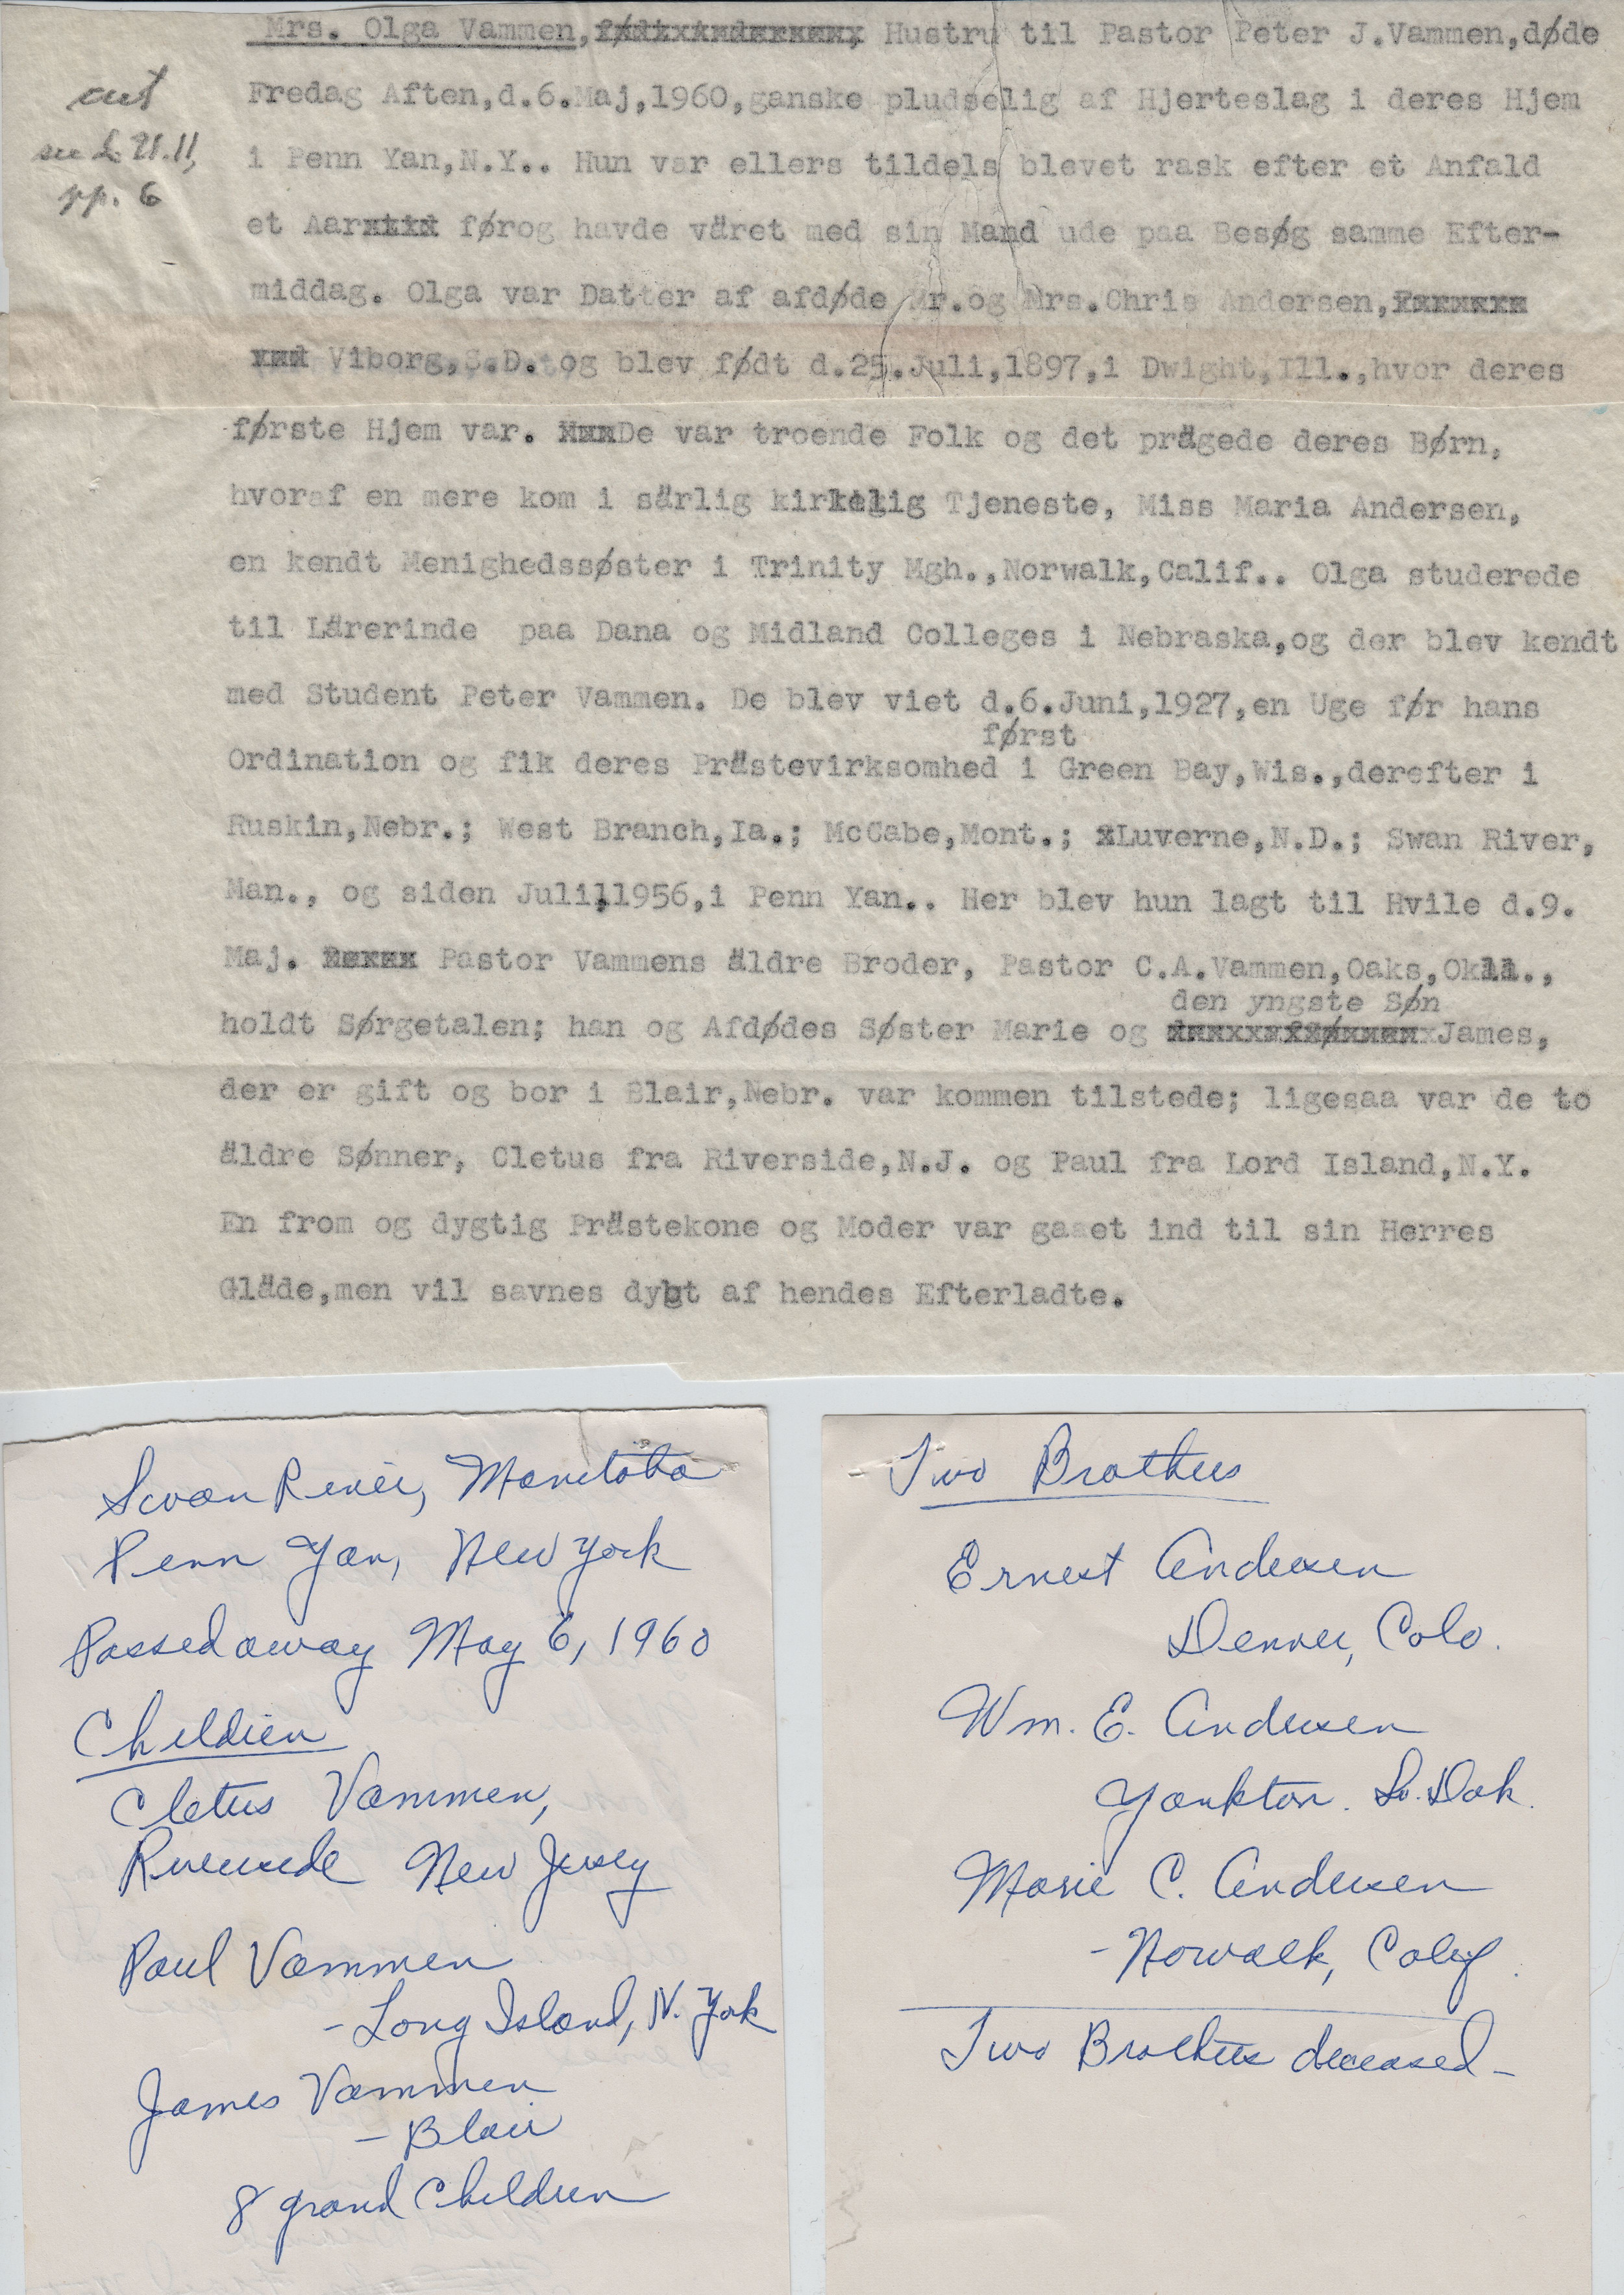 Mrs. Olga Vammen, Hustru til Pastor Peter J.Vammen,døde
cut
Fredag Aften,d.6.Maj,1960,ganske pludselig af Hjerteslag i deres Hjem
see L. 21.11,
i Penn Yan,N.Y.. Hun var ellers tildels blevet rask efter et Anfald
pp. 6
et Aar førog havde väret med sin Mand ude paa Besøg samme Efter-
middag. Olga var Datter af afdøde Mr.og Mrs.Chris Andersen,
Viborg,S.D. og blev født d.25.Juli,1897,i Dwight,Ill.,hvor deres
første Hjem var. De var troende Folk og det prägede deres Børn,
hvoraf en mere kom i särlig kirkelig Tjeneste, Miss Maria Andersen,
en kendt Menighedssøster i Trinity Mgh.,Norwalk,Calif.. Olga studerede
til Lärerinde paa Dana og Midland Colleges i Nebraska,og der blev kendt
med Student Peter Vammen. De blev viet d.6.Juni,1927,en Uge før hans
først
Ordination og fik deres Prästevirksomhed i Green Bay,Wis.,derefter i
Ruskin,Nebr.; West Branch,Ia.; McCabe,Mont.; Luverne,N.D.; Swan River,
Man., og siden Juli,1956,i Penn Yan.. Her blev hun lagt til Hvile d.9.
Maj. Pastor Vammens äldre Broder, Pastor C.A.Vammen,Oaks,Okla.,
den yngste Søn
holdt Sørgetalen; han og Afdødes Søster Marie og James,
der er gift og bor i Blair,Nebr. var kommen tilstede; ligesaa var de to
äldre Sønner, Cletus fra Riverside,N.J. og Paul fra Lord Island,N.Y.
En from og dygtig Prästekone og Moder var gaaet ind til sin Herres
Gläde,men vil savnes dybt af hendes Efterladte.
Swan River, Manitoba
Penn Yan, New York
Passed away May 6, 1960
Children
Cletus Vammen,
Riverside New Jersey
Paul Vammen
- Long Island, N. York
James Vammen
- Blair
8 grand Children
Two Brothers
Ernest Andersen
Denver, Colo.
Wm. E. Andersen
Yankton. So. Dak.
Marie C. Andersen
- Norwalk, Calif.
Two Brothers deceased -